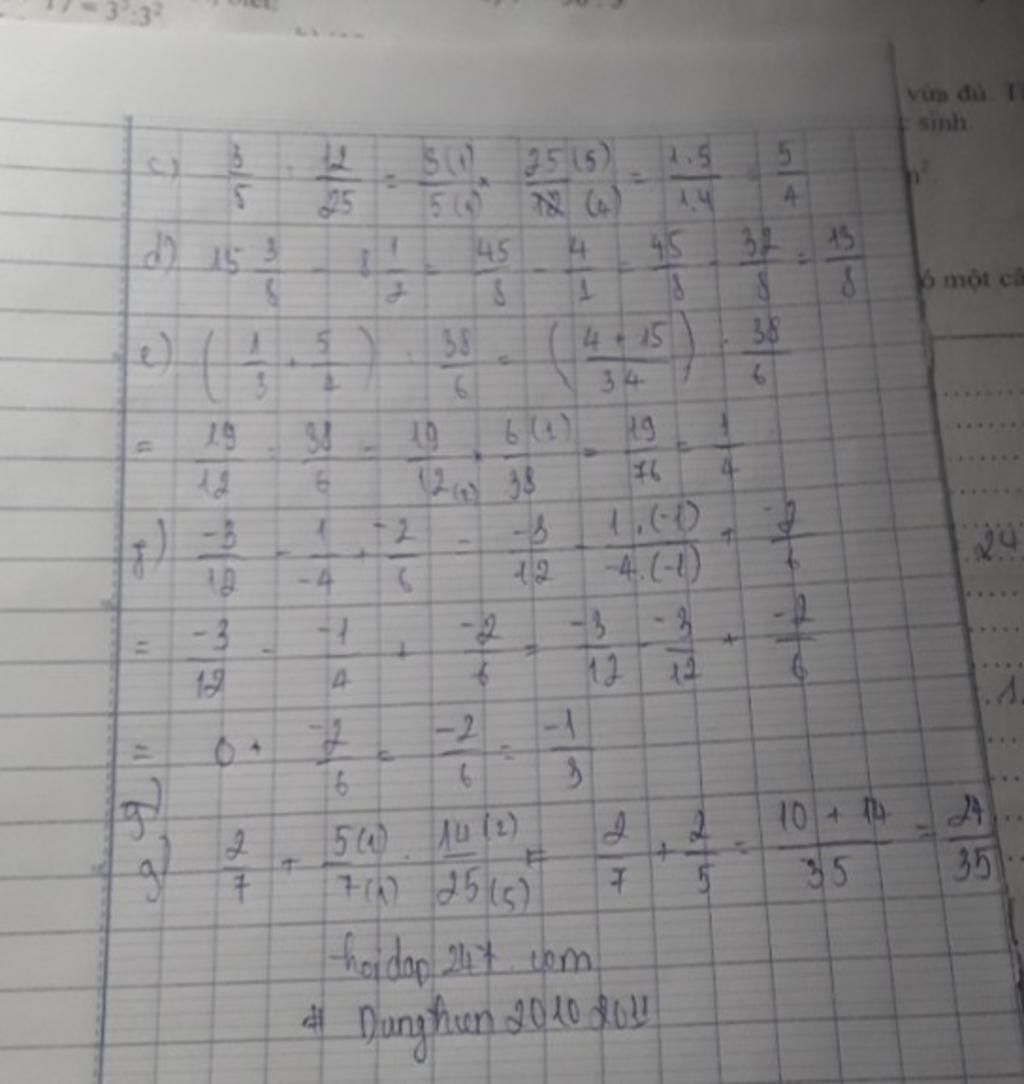 17 = 3³.3²
vừa đủ. T
sinh
c) 3/5 : 12/25 = 3(1)/5(1) . 25(5)/12(4) = 1.5/1.4 = 5/4
ó một câ
d) 15 3/8 - 8 1/2 = 45/8 - 4/1 = 45/8 - 32/8 = 13/8
e) (1/3 + 5/4) : 38/6 = (4 + 15/34) : 38/6
= 19/12 : 38/6 = 19/12(2) . 6(1)/38 = 19/76 = 1/4
f) -3/12 - 1/-4 + -2/6 = -3/12 - 1.(-1)/-4.(-1) + -2/6
= -3/12 - -1/4 + -2/6 = -3/12 - -3/12 + -2/6
= 0 + -2/6 = -2/6 = -1/3
g)
g) 2/7 + 5(1)/7(1) . 14(2)/25(5) = 2/7 + 2/5 = 10 + 14/35 = 24/35
hoidap247.com